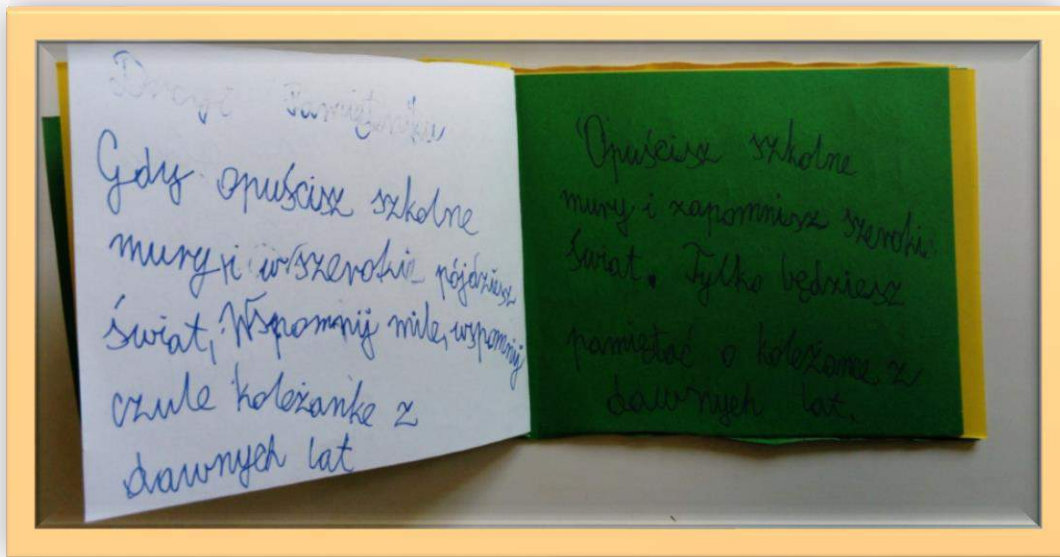 Drogi Pamiętniku
Gdy opuścisz szkolne
mury, i w szerokie pójdziesz
świat, Wspomnij mile, wspomnij
czule koleżanke z
dawnych lat
Opuścisz szkolne
mury i zapomnisz szeroki
świat. Tylko będziesz
pamiętać o koleżance z
dawnych lat.